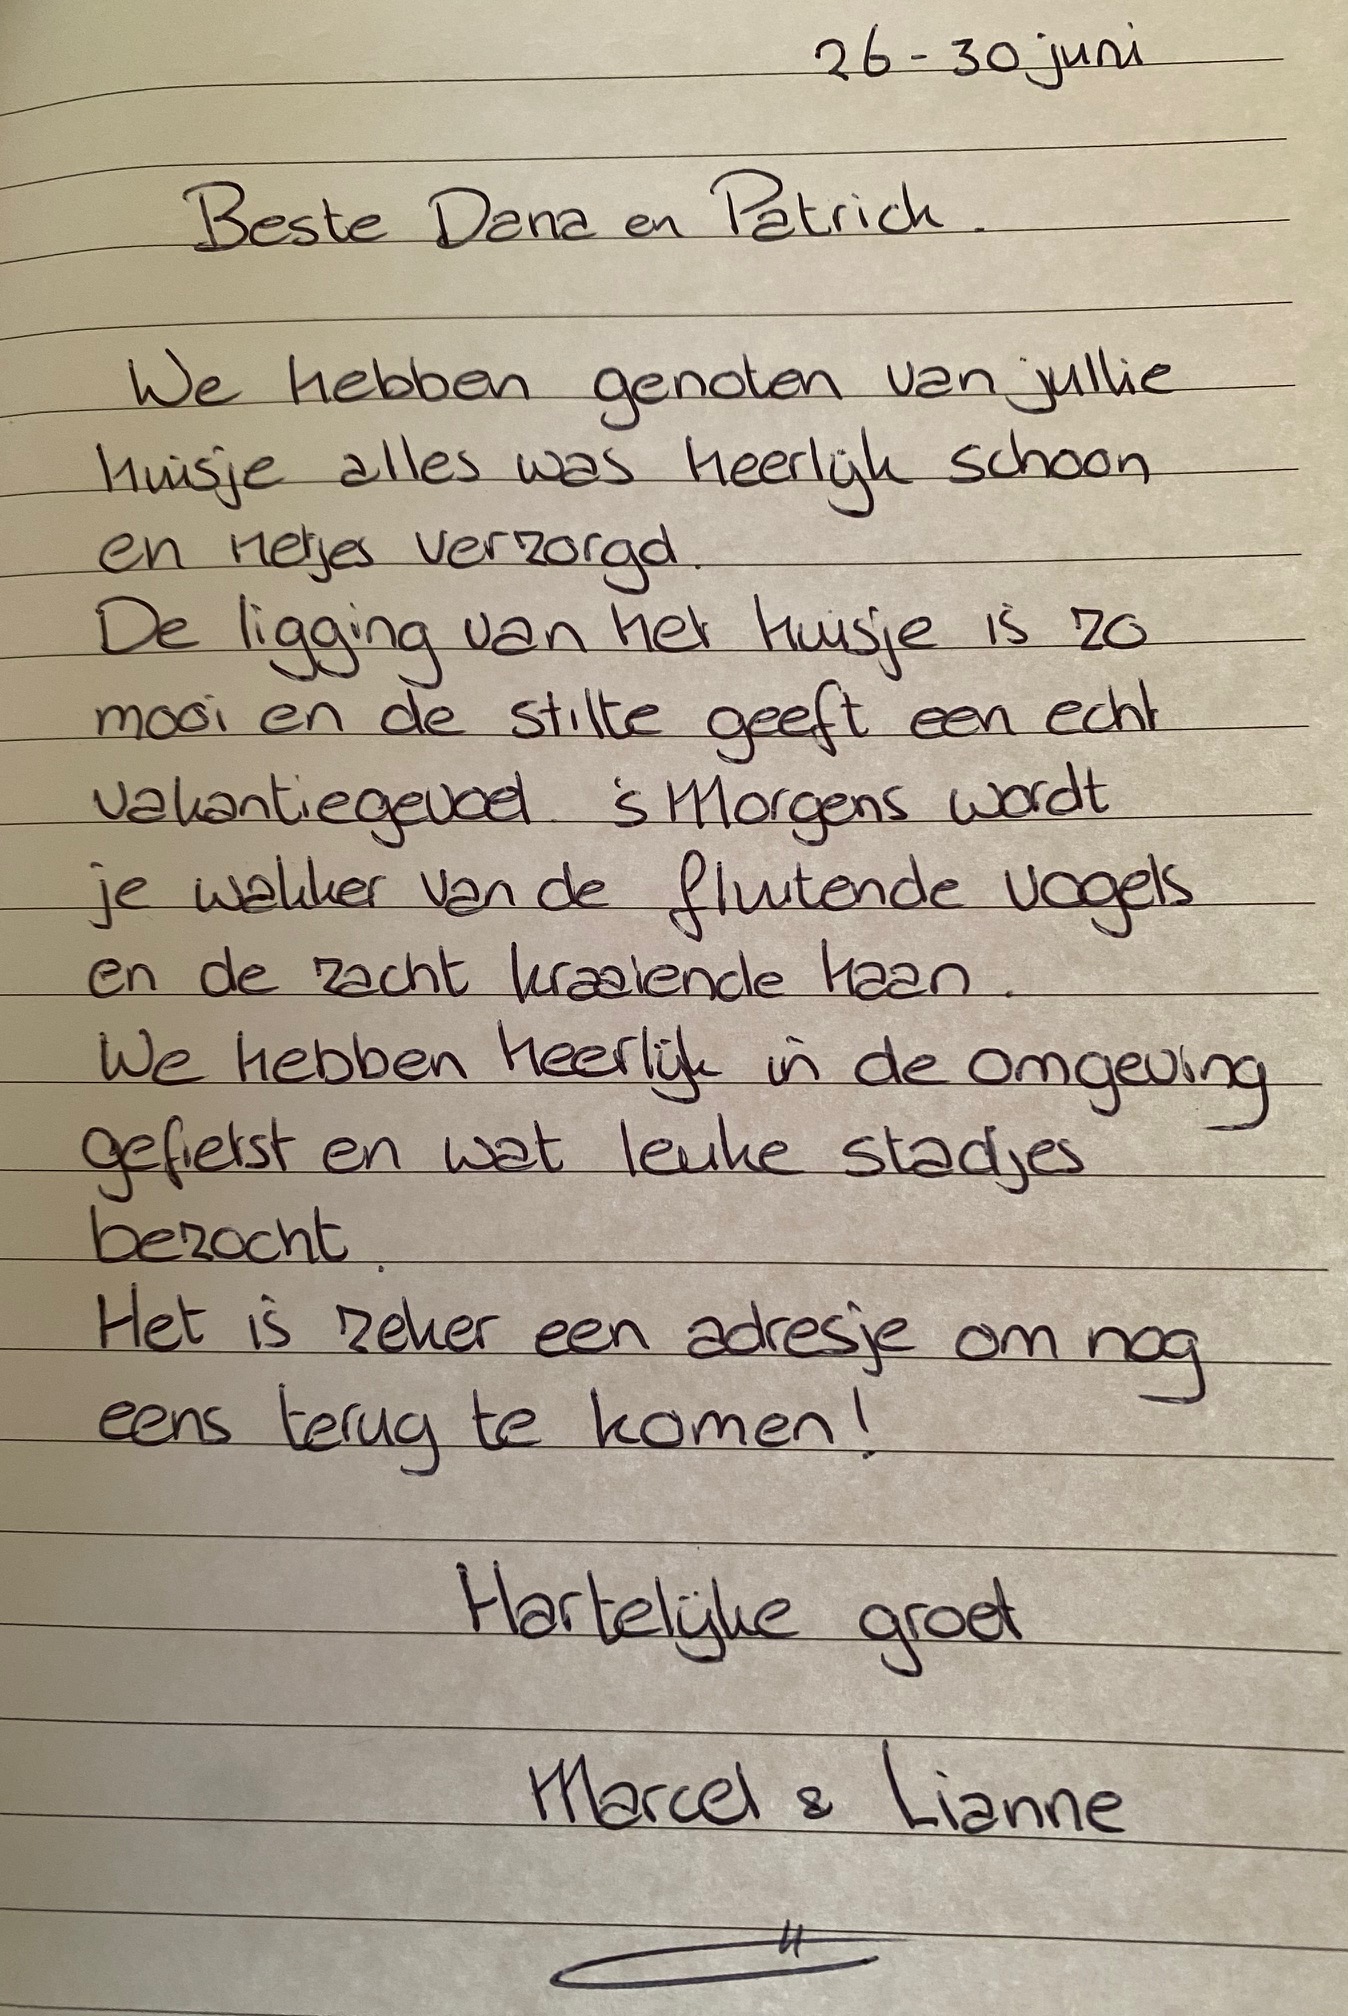 26 - 30 juni
Beste Dana en Patrick.
We hebben genoten van jullie
huisje alles was heerlijk schoon
en netjes verzorgd.
De ligging van het huisje is zo
mooi en de stilte geeft een echt
vakantiegevoel. 's Morgens wordt
je wakker van de fluitende vogels
en de zacht kraaiende haan.
We hebben heerlijk in de omgeving
gefietst en wat leuke stadjes
bezocht.
Het is zeker een adresje om nog
eens terug te komen!
Hartelijke groet
Marcel & Lianne